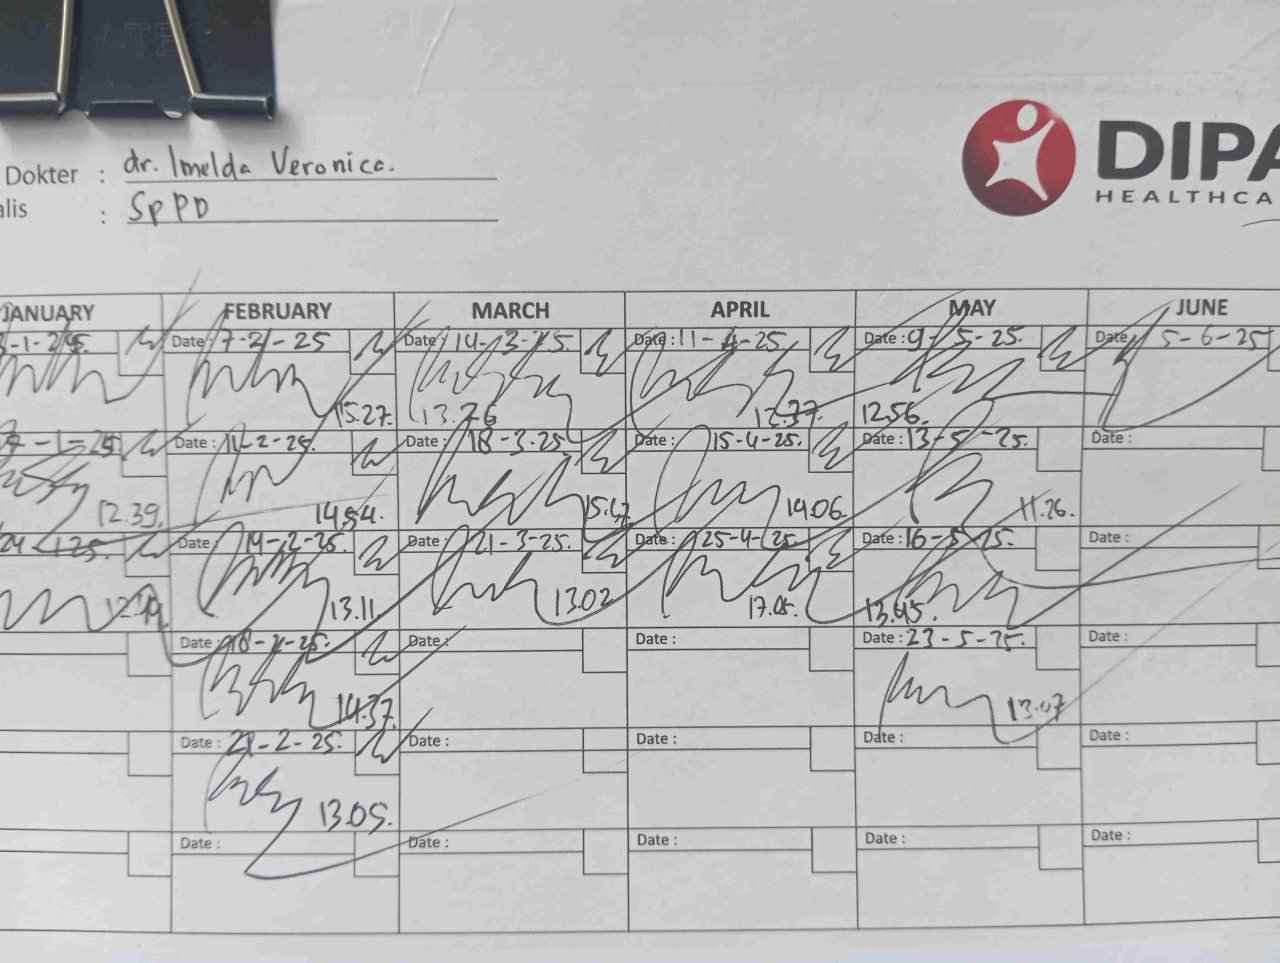 Dokter : dr. Imelda Veronica.
alis : SpPD
DIPA
HEALTHCA
JANUARY FEBRUARY MARCH APRIL MAY JUNE
-1-25. Date : 7-2-25 Date : 14-3-25. Date : 11-4-25. Date : 9-5-25. Date : 5-6-25
15.27. 13.26 12.37. 12.56.
-1-25 Date : 11-2-25. Date : 18-3-25. Date : 15-4-25. Date : 13-5-25. Date :
12.39. 14.54. 15.47 14.06. 11.26.
24-1-25. Date : 14-2-25. Date : 21-3-25. Date : 25-4-25. Date : 16-5-25. Date :
13.11 13.02 17.05. 13.45.
Date : 18-2-25. Date : Date : Date : 23-5-25. Date :
14.37. 13.07
Date : 21-2-25. Date : Date : Date : Date :
13.05.
Date : Date : Date : Date : Date :